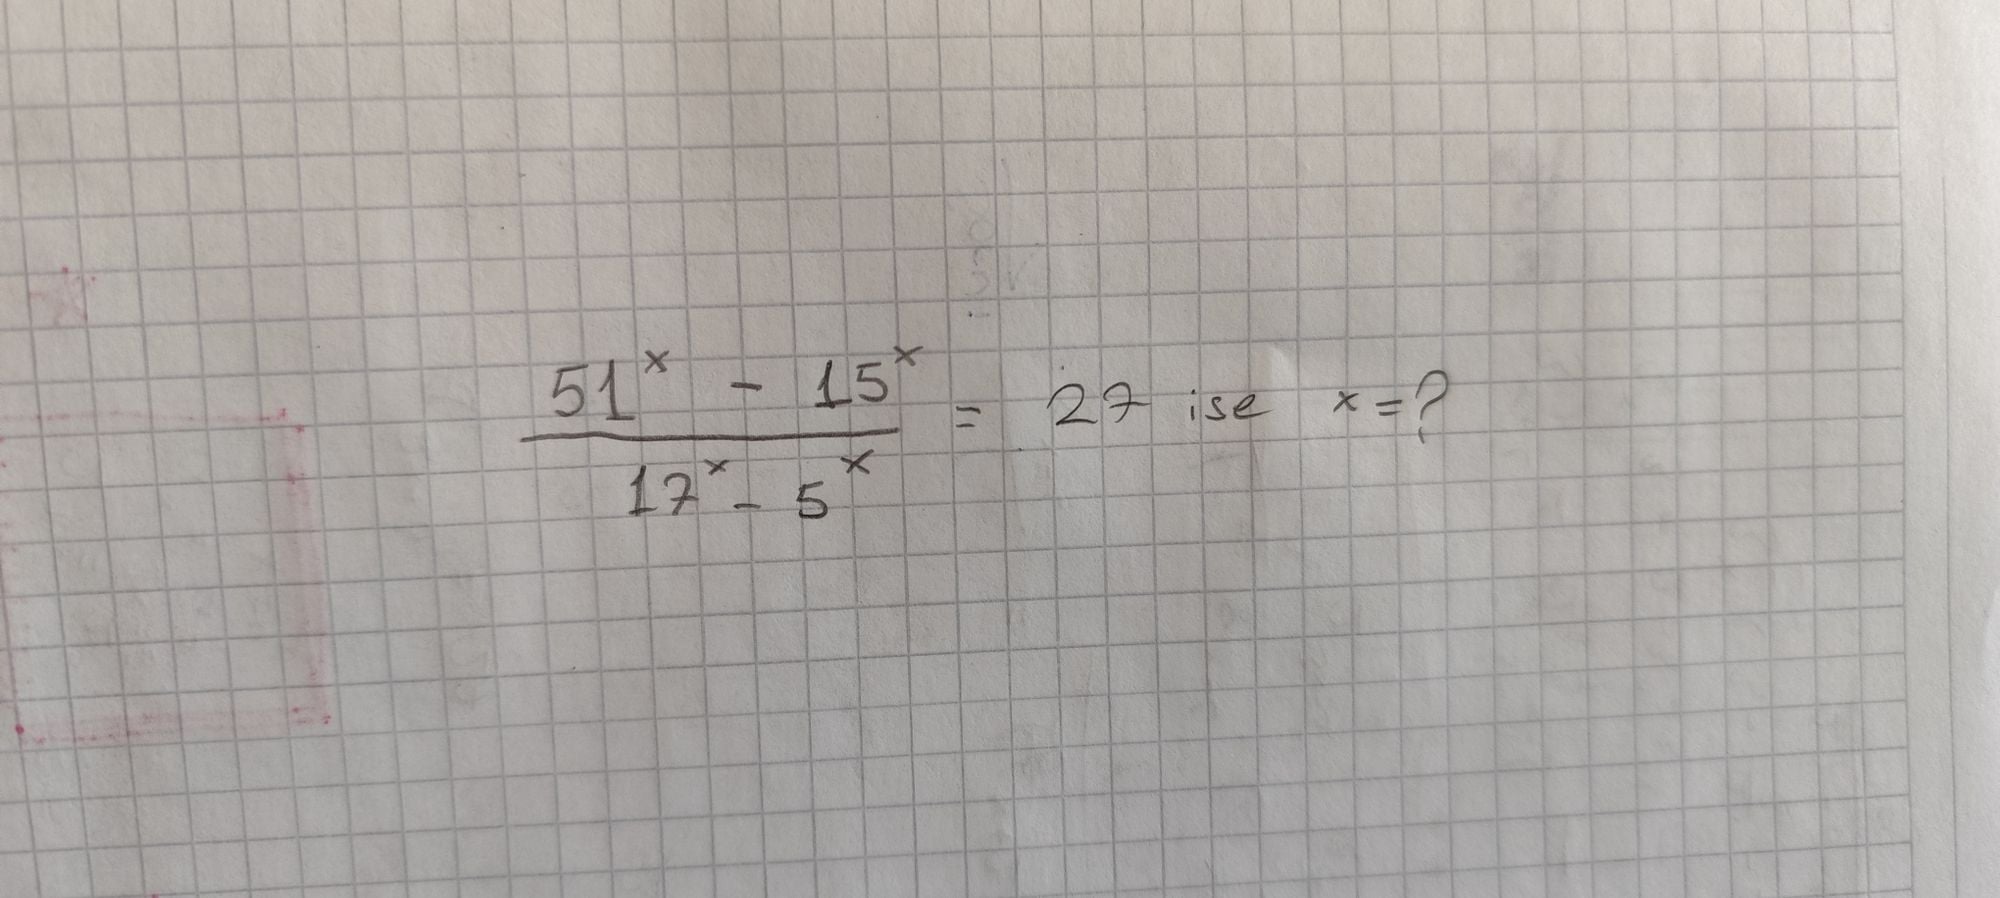 51^x - 15^x
17^x - 5^x
= 27 ise x = ?